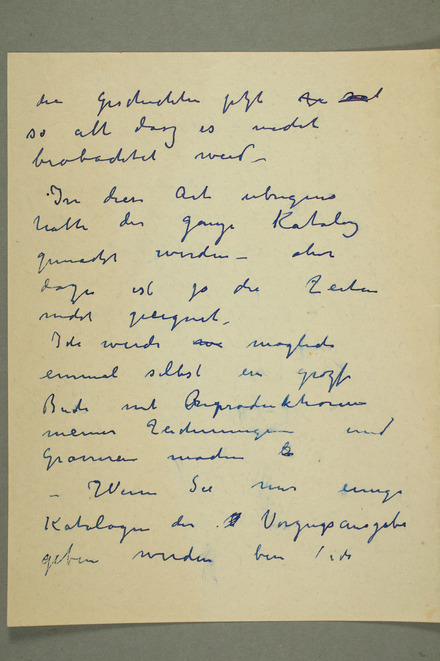 die Geschichten jetzt
so alt dasz es nicht
beobachtet wird –
In dieser Art übrigens
hatte der ganze Katalog
gemacht werden – aber
dazu ist ja die Zeiten
nicht geeignet.
Ich werde möglich
einmal selbst ein groze
Buch mit Reproduktionen
meiner Zeichnungen und
Gravuren machen
– Wenn Sie mir einige
Katalogen der Vorzugsausgabe
geben werden bin ich